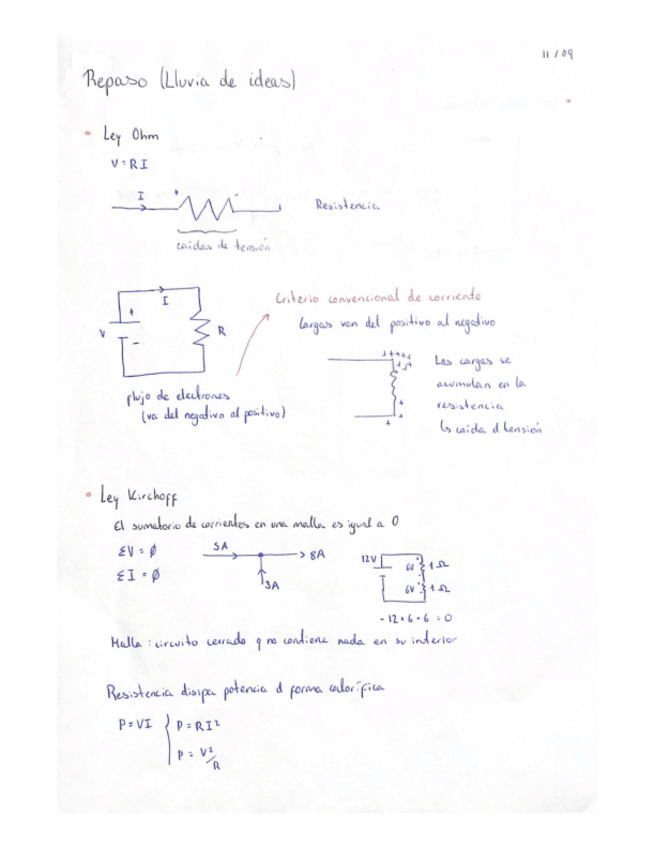 11/09
Repaso (Lluvia de ideas)
• Ley Ohm
V=RI
I + -
Resistencia
caídas de tensión
I
+
V
-
R
Criterio convencional de corriente
Cargas van del positivo al negativo
flujo de electrones
(va del negativo al positivo)
+++++
++
+
+
Las cargas se
acumulan en la
resistencia
↳ caida d tensión
• Ley Kirchoff
El sumatorio de corrientes en una malla es igual a 0
ΣV = Ø
ΣI = Ø
5A
8A
3A
12V
6V 1Ω
6V 1Ω
-12+6+6=0
Malla: circuito cerrado q no contiene nada en su interior
Resistencia disipa potencia d forma calorífica
P=VI
P=RI²
P = V²/R